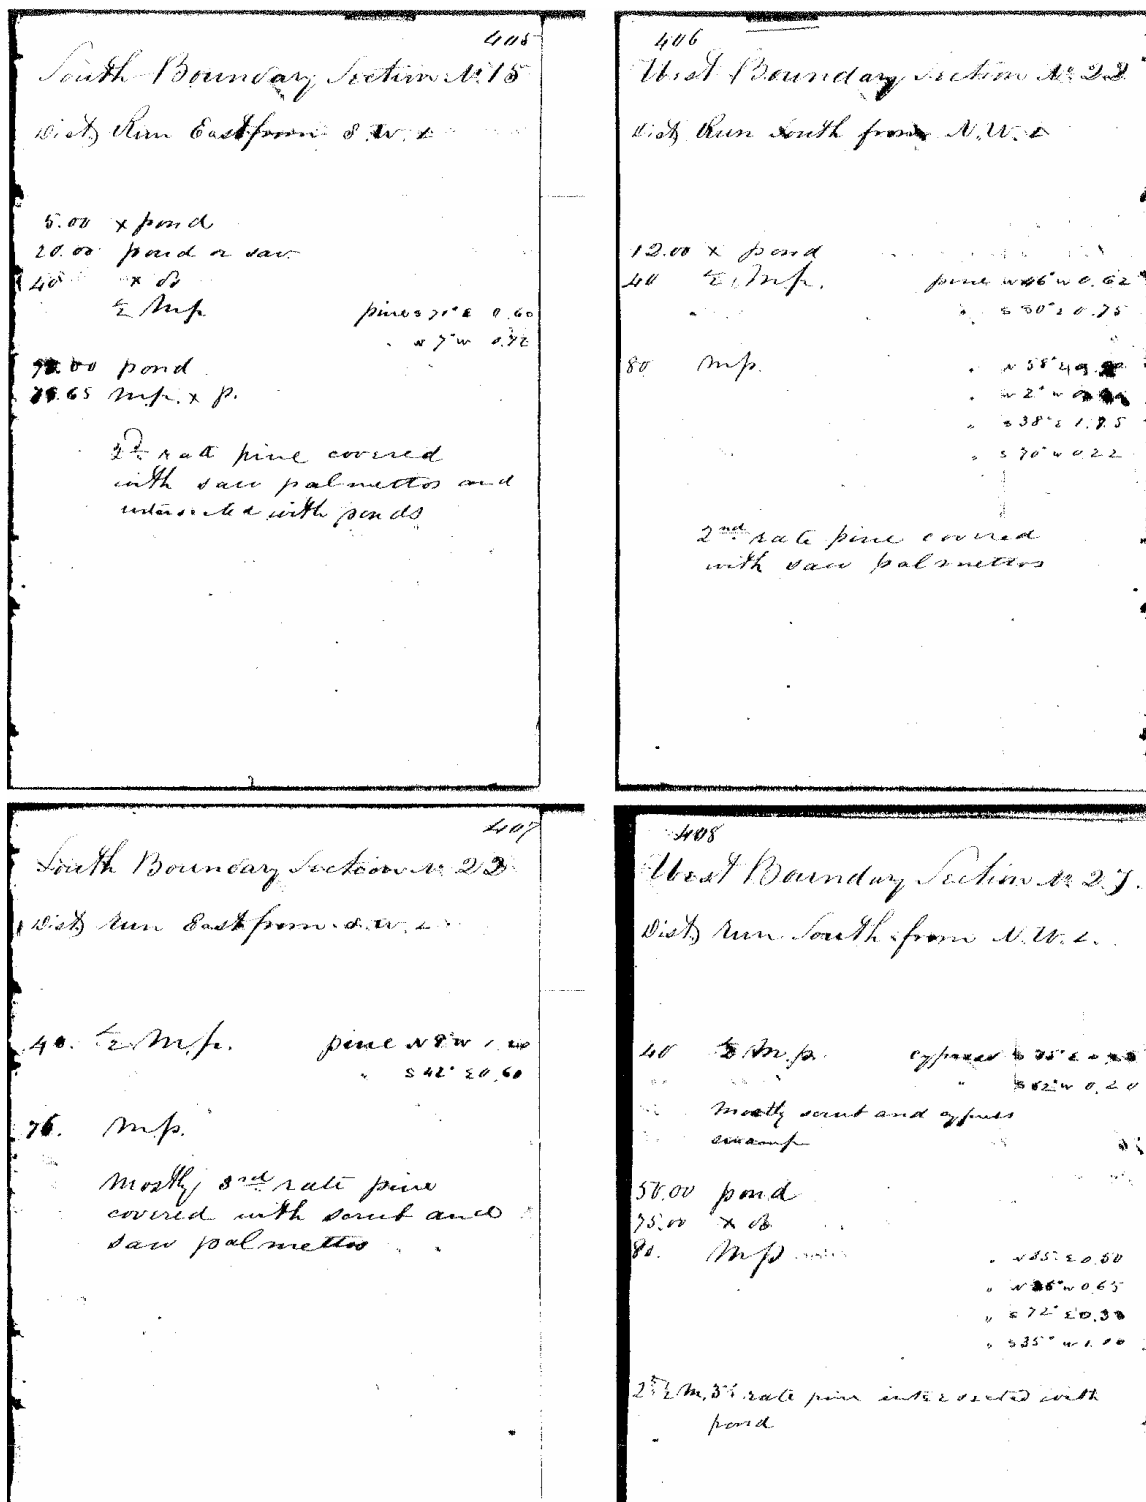 405
South Boundary Section No 15
Dist Run East from S.W. c
5.00 x pond
20.00 pond or sav
40 x do
½ M.p. pine S 71° E 0.60
" N 7° W 0.72
pond
M.p. x p.
2d rate pine covered
with saw palmettos and
intersected with ponds
406
West Boundary Section No 22
Dist Run South from N.W. c
12.00 x pond
40 ½ M.p. pine W 0.62
" S 50° E 0.75
80 M.p. " N 58°
" N 2° W
" S 38° E 1.75
" S 70° W 0.22
2nd rate pine covered
with saw palmettos
407
South Boundary Section No 22
Dist Run East from S.W. c
40. ½ M.p. pine N 8° W
" S 42° E 0.60
76. M.p.
Mostly 3rd rate pine
covered with scrub and
saw palmettos
408
West Boundary Section No 27.
Dist Run South from N.W. c.
40 ½ M.p. cypress S 75° E
" S 62° W 0.20
Mostly scrub and cypress
swamp
50.00 pond
75.00 x do
80. M.p. " E 0.50
" W 0.65
" S 72° E 0.30
" S 35° W 1.00
2d ½ M, 3d rate pine intersected with
pond